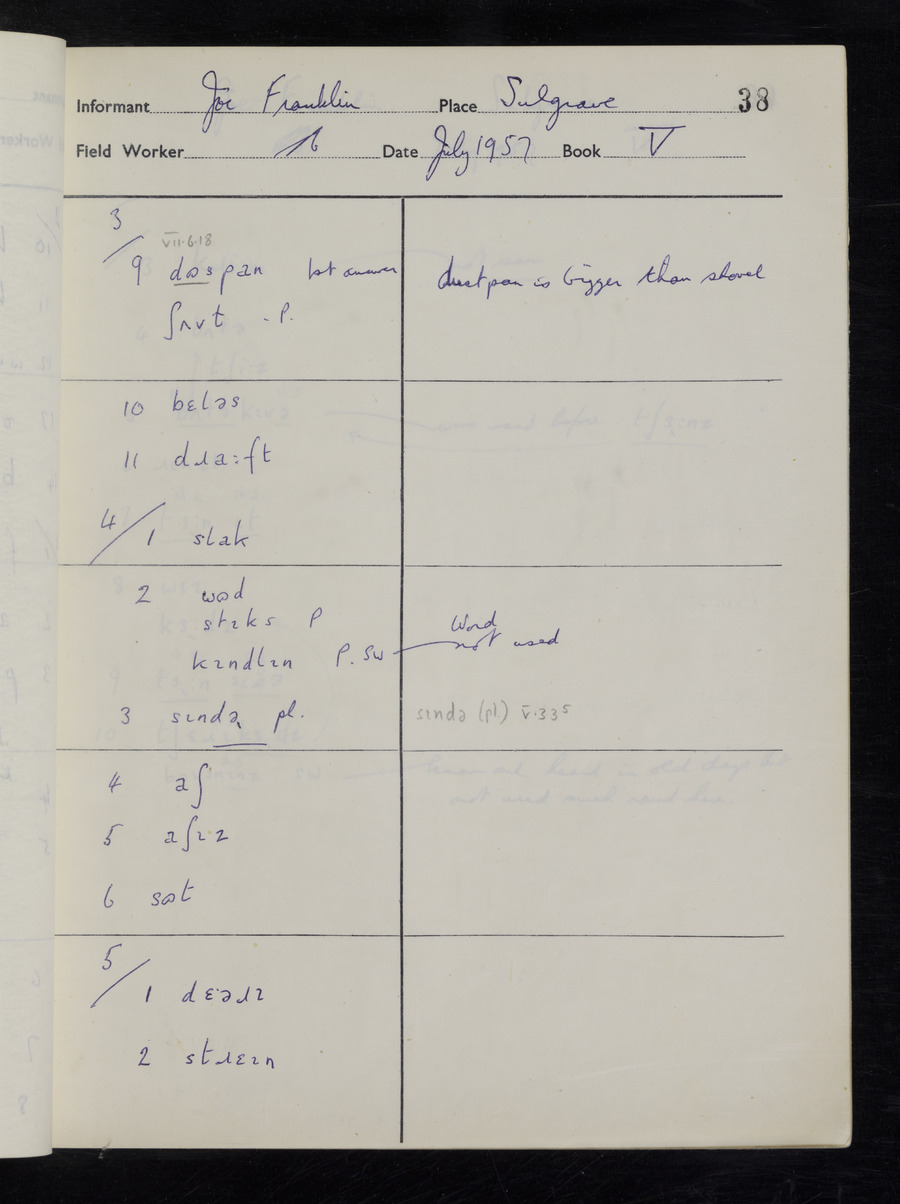 Informant Joe Franklin Place Sulgrave 38
Field Worker Date July 1957 Book V
3/
VII.6.18
9 dɷs pan 1st answer dustpan is bigger than shovel
ʃʌvt - P.
10 bɛləs
11 dɹa:ft
4/1 slak
2 wɷd
stɪks P
kɪndlɪn P. SW Word not used
3 sɪndə pl. sɪndə (pl.) V.3.3⁵
4 aʃ
5 aʃɪz
6 sɷt
5/1 dɛ·əɹɪ
2 stɹɛɪn